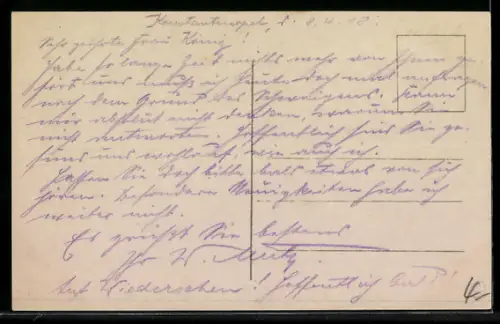 Konstantinopel, d. 9.4.18.
Sehr geehrte Frau König!
Habe so lange Zeit nichts mehr von Ihnen ge-
hört und muß ich heute doch mal anfragen
nach dem Grund des Schweigens. Kann
mir absolut nicht denken, warum Sie
nicht antworten. Hoffentlich sind Sie ge-
sund und wohlauf, wie auch ich.
Lassen Sie doch bitte bald etwas von sich
hören. Besondere Neuigkeiten habe ich
weiter nicht.
Es grüßt Sie bestens
Ihr
Auf Wiedersehen! Hoffentlich